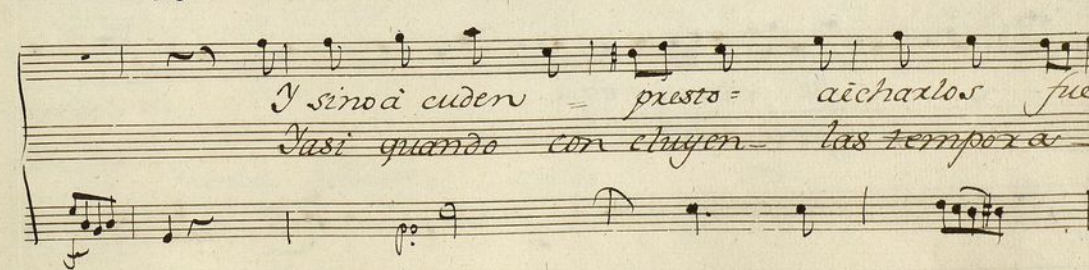 Y sinoà cuden = presto = aècharlos fue
Yasi quando con cluyen - las tempora -
f
pp: